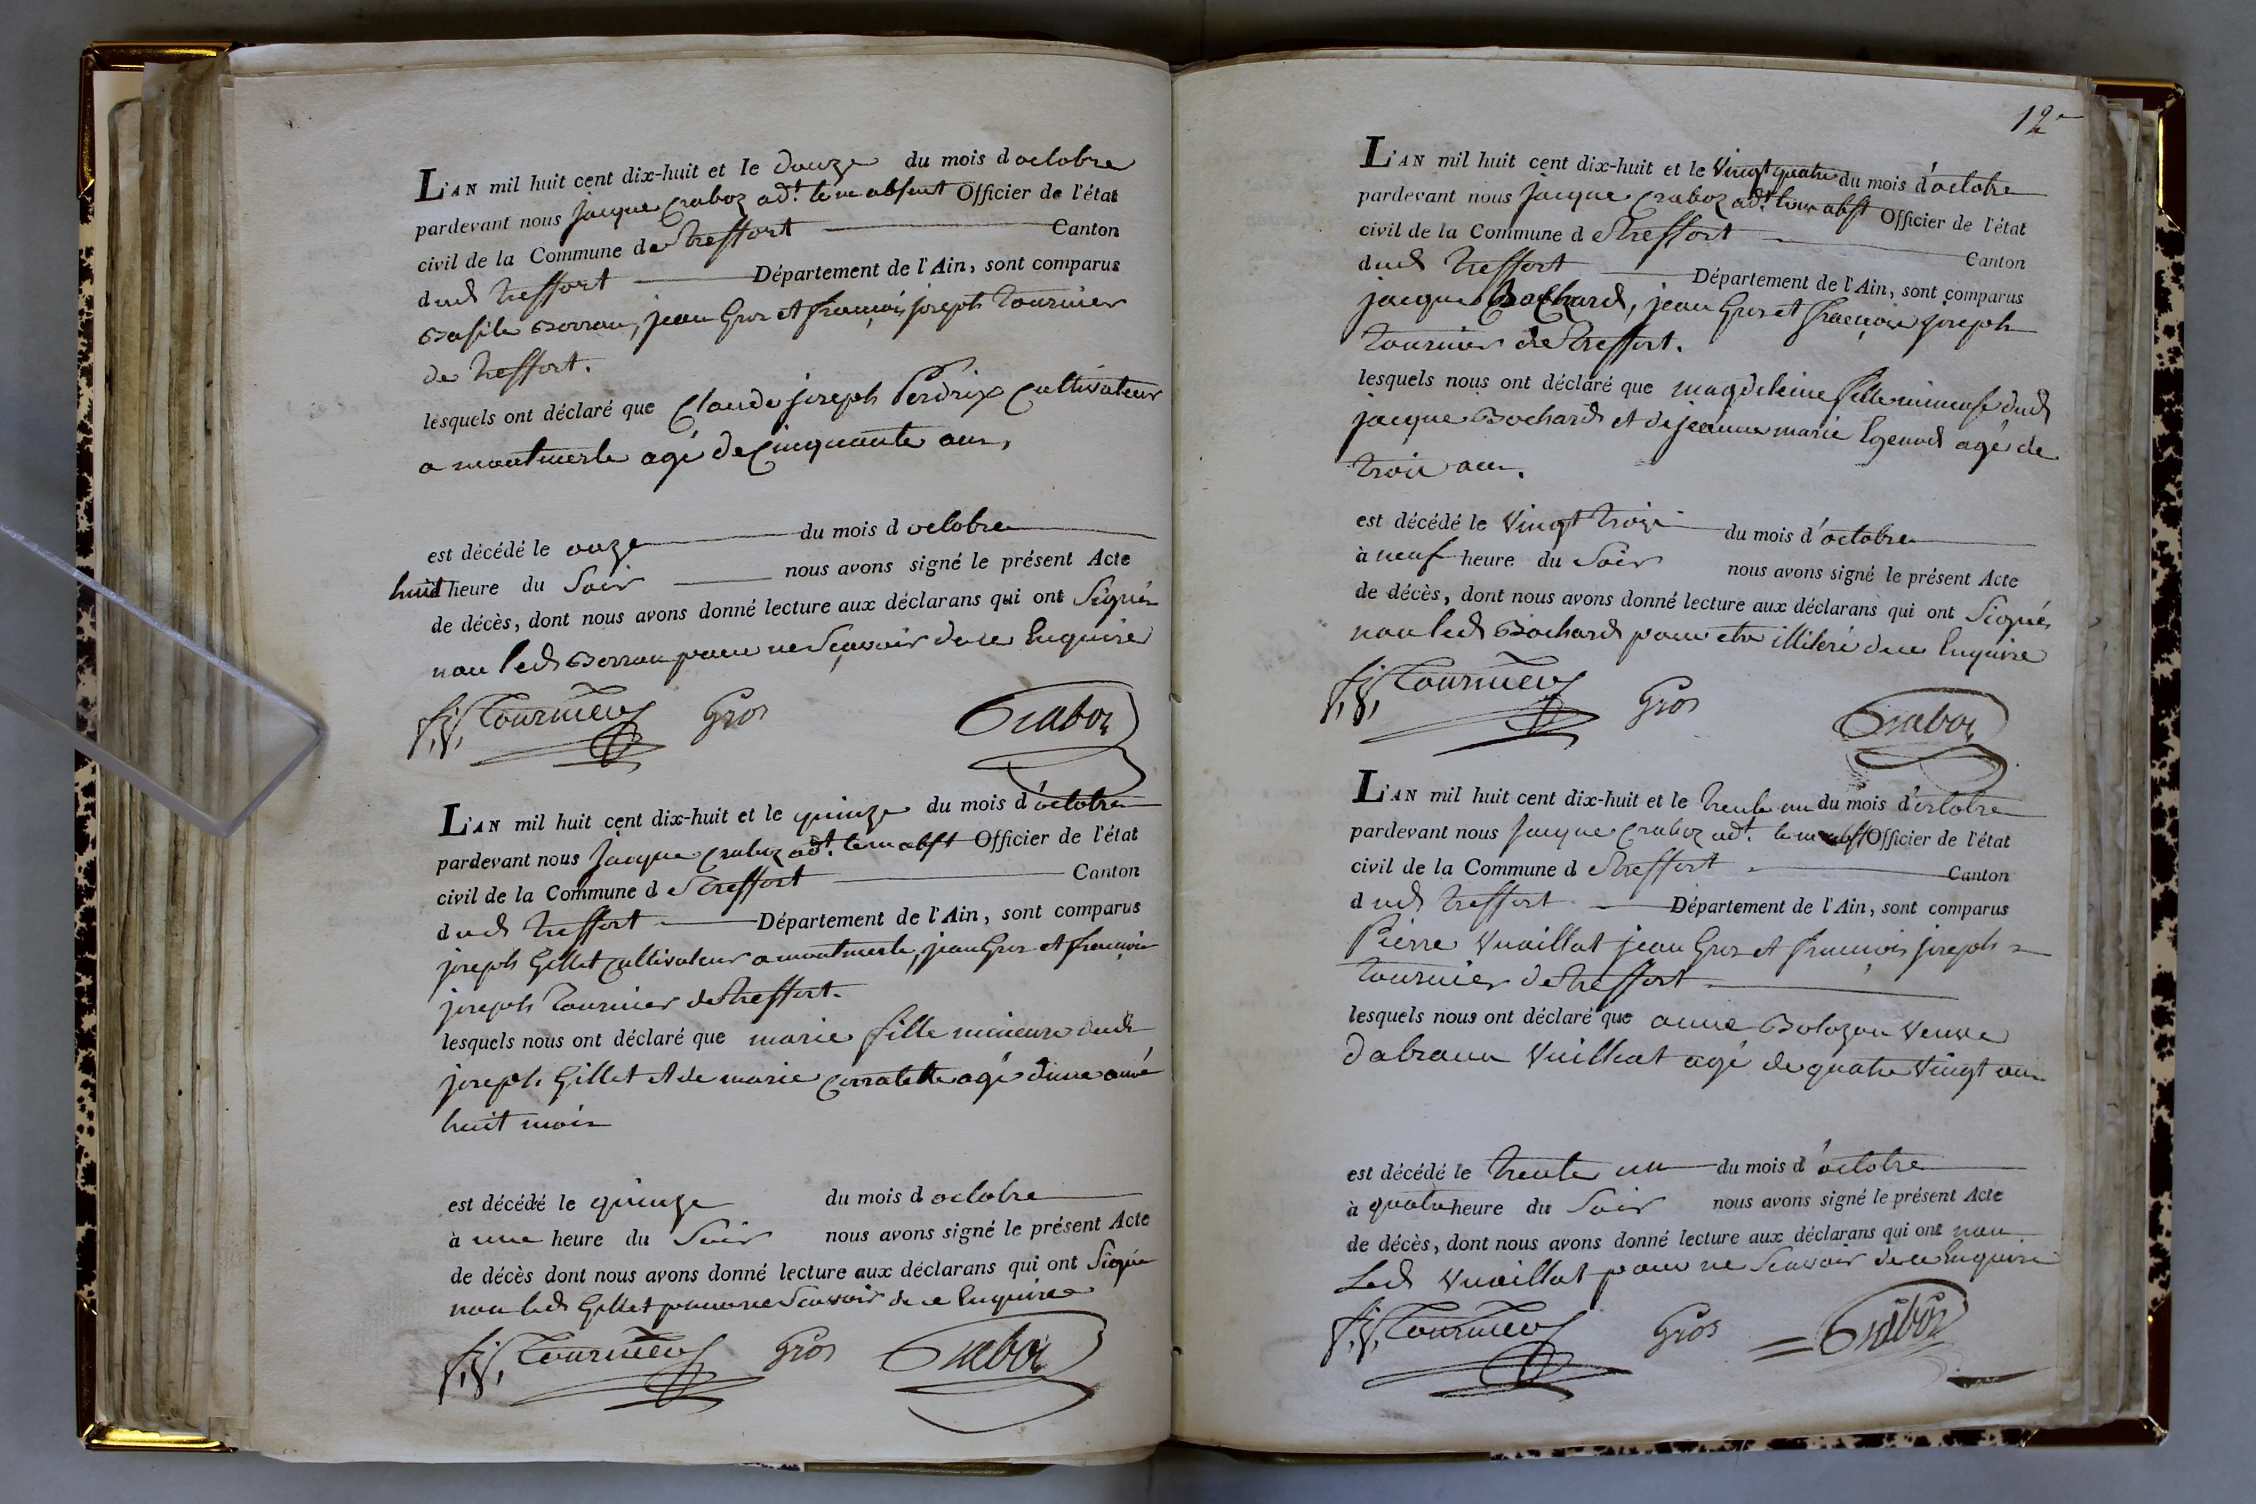 L'AN mil huit cent dix-huit et le douze du mois d octobre
pardevant nous jacque Craboz adt. le m absent Officier de l'état
civil de la Commune de Treffort Canton
dud Treffort Département de l'Ain, sont comparus
Basile Borron, jean Gros et françois joseph Tournier
de Treffort.
lesquels ont déclaré que Claude joseph Perdrix Cultivateur
a montmerle agé de Cinquante ans,
est décédé le onze du mois d octobre
huit heure du Soir nous avons signé le présent Acte
de décès, dont nous avons donné lecture aux déclarans qui ont Signés
non led Borron pour ne Sçavoir de ce Enquire
f. j. Tournier Gros Craboz
L'AN mil huit cent dix-huit et le quinze du mois d'octobre
pardevant nous jacque Craboz adt. le m abst Officier de l'état
civil de la Commune d e Treffort Canton
dud Treffort Département de l'Ain, sont comparus
joseph Gillet Cultivateur a montmerle, jean Gros et françois
joseph Tournier de Treffort.
lesquels nous ont déclaré que marie fille mineure dud
joseph Gillet et de marie agé d'une année
huit mois
est décédé le quinze du mois d octobre
à une heure du Soir nous avons signé le présent Acte
de décès dont nous avons donné lecture aux déclarans qui ont Signé
non led Gillet pour ne Scavoir de ce Enquire
f. j. Tournier Gros Craboz
12
L'AN mil huit cent dix-huit et le Vingt quatre du mois d'octobre
pardevant nous jacque Craboz adt. le m abst Officier de l'état
civil de la Commune d e Treffort Canton
dud Treffort Département de l'Ain, sont comparus
jacque Bochard, jean Gros et françois joseph
Tournier de Treffort.
lesquels nous ont déclaré que magdeleine fille mineure dud
jacque Bochard et de jeanne marie Egenod agé de
trois ans.
est décédé le Vingt trois du mois d'octobre
à neuf heure du Soir nous avons signé le présent Acte
de décès, dont nous avons donné lecture aux déclarans qui ont Signés
non led Bochard pour etre illiteré de ce Enquire
f. j. Tournier Gros Craboz
L'AN mil huit cent dix-huit et le trente un du mois d'octobre
pardevant nous jacque Craboz adt. le m abst Officier de l'état
civil de la Commune d e Treffort Canton
dud Treffort Département de l'Ain, sont comparus
Pierre Vuaillat jean Gros et françois joseph
Tournier de Treffort
lesquels nous ont déclaré que anne Bolozon Veuve
d'abram Vuillat agé de quatre Vingt ans
est décédé le trente un du mois d'octobre
à quatre heure du Soir nous avons signé le présent Acte
de décès, dont nous avons donné lecture aux déclarans qui ont non
Led Vuaillat pour ne Scavoir de ce Enquire
f. j. Tournier Gros Craboz